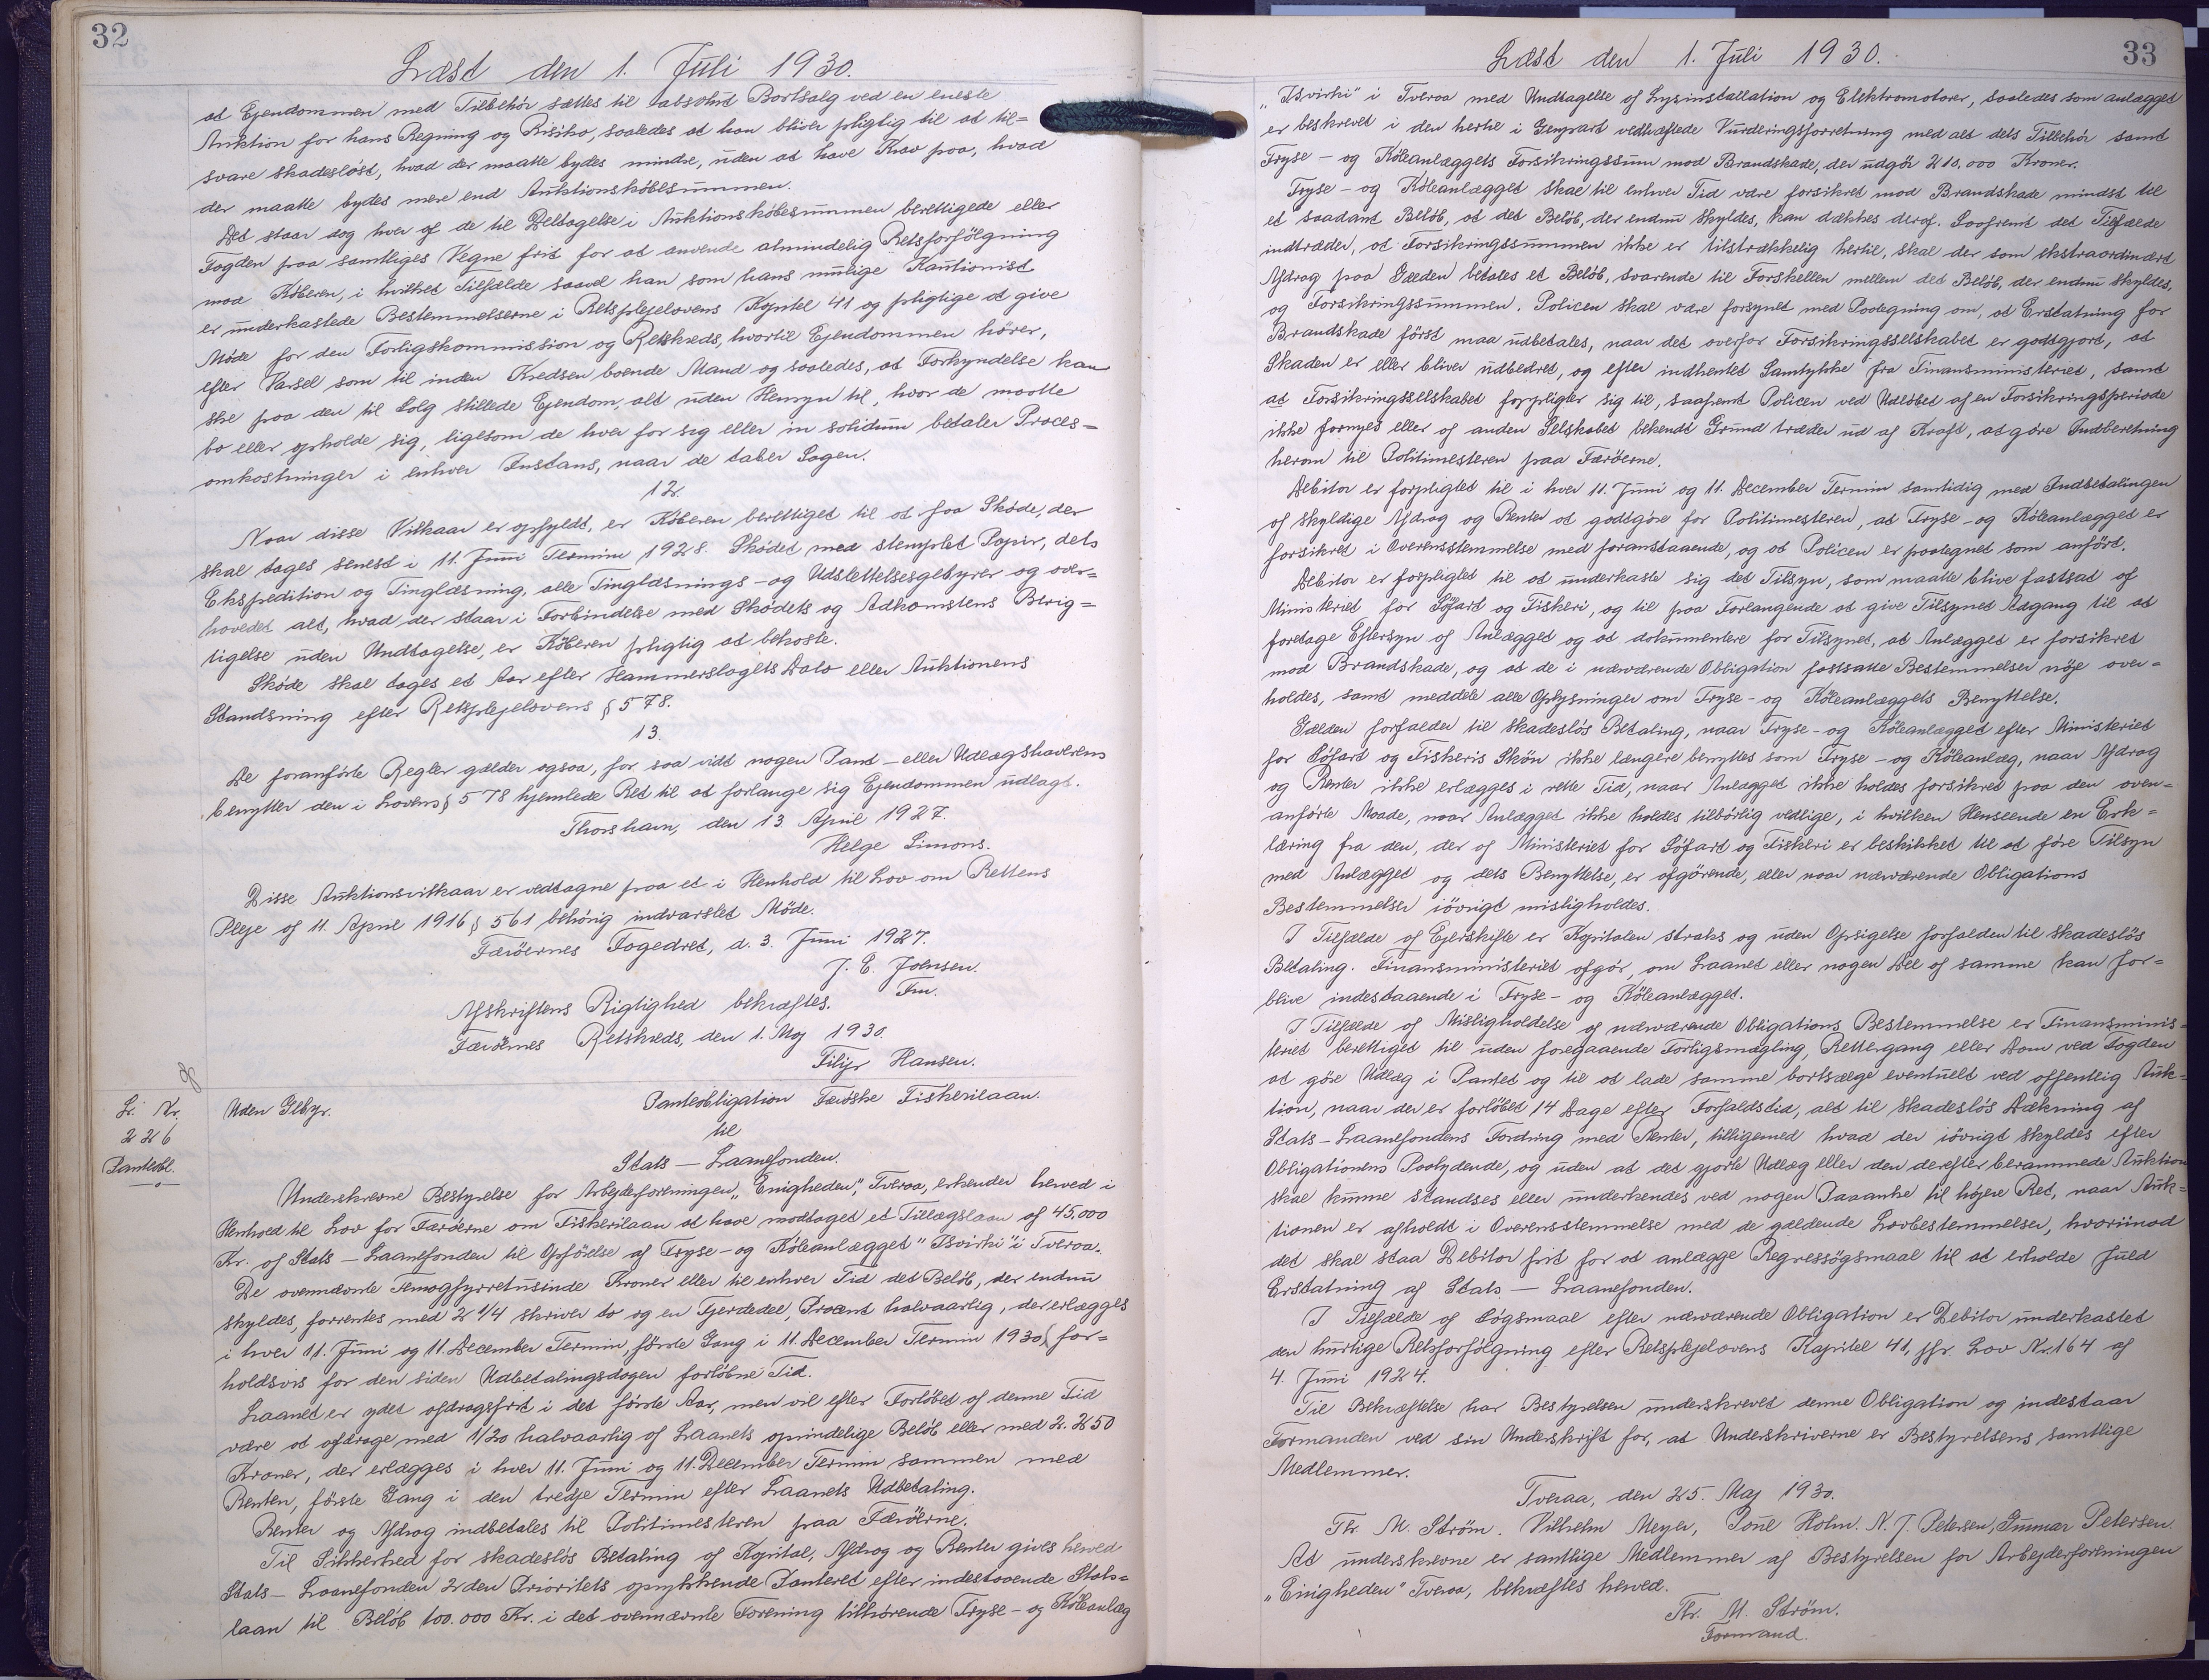 32
Læst den 1. Juli 1930.
at Ejendommen med Tilbehör sættes til absolut Bortsalg ved en eneste
Auktion for hans Regning og Risiko, saaledes at han bliver pligtig til at til=
svare skadesløst, hvad der maatte bydes mindre, uden at have Krav paa, hvad
der maatte bydes mere end Auktionskøbesummen.
Det staar dog hver af de til Deltagelse i Auktionskøbesummen berettigede eller
Fogden paa samtliges Vegne frit for at anvende almindelig Retsforfölgning
mod Køberen, i hvilket Tilfælde saavel han som hans mulige Kautionist
er underkastede Bestemmelserne i Retsplejelovens Kapitel 41 og pligtige at give
Møde for den Forligskommission og Retskreds, hvortil Ejendommen hører,
efter Varsel som til inden Kredsen boende Mand og saaledes, at Forkyndelse kan
ske paa den til Salg stillede Ejendom, alt uden Hensyn til, hvor de maatte
bo eller opholde sig, ligesom de hver for sig eller in solidum betaler Proces=
omkostninger i enhver Instans, naar de taber Sagen.
12.
Naar disse Vilkaar er opfyldt, er Köberen berettiget til at faa Skøde, der
skal tages senest i 11. Juni Termin 1928. Skødet med stemplet Papir, dets
Ekspedition og Tinglæsning, alle Tinglæsnings- og Udslettelsesgebyrer og over=
hovedet alt, hvad der staar i Forbindelse med Skødets og Adkomstens Berig=
tigelse uden Undtagelse, er Köberen pligtig at bekoste.
Skøde skal tages et Aar efter Hammerslagets Dato eller Auktionens
Standsning efter Retsplejelovens § 578.
13.
De foranførte Regler gælder ogsaa, for saa vidt nogen Pant- eller Udlægshaverens
benytter den i Lovens § 578 hjemlede Ret til at forlange sig Ejendommen udlagt.
Thorshavn, den 13. April 1927.
Helge Simons.
Disse Auktionsvilkaar er vedtagne paa et i Henhold til Lov om Rettens
Pleje af 11. April 1916 § 561 behörig indvarslet Møde.
Færöernes Fogedret, d. 3. Juni 1927.
J. E. Joensen.
Fm.
Afskriftens Rigtighed bekræftes.
Færöernes Retskreds, den 1. Maj 1930.
Filip Hansen.
L. Nr.
226
Panteobl.
Uden Gebyr.
Panteobligation Færøske Fiskerilaan.
til
Stats — Laanefonden.
Underskrevne Bestyrelse for Arbejderforeningen "Enigheden", Tveraa, erkender herved i
Henhold til Lov for Færøerne om Fiskerilaan at have modtaget et Tillægslaan af 45,000
Kr. af Stats — Laanefonden til Opførelse af Fryse- og Köleanlægget "Isvirki" i Tveraa.
De ovennævnte Femogfyrretusinde Kroner eller til enhver Tid det Beløb, der endnu
skyldes, forrentes med 2 1/4 skriver to og en Fjerdedel, Procent halvaarlig, der erlægges
i hver 11. Juni og 11. December Termin, første Gang i 11. December Termin 1930, for=
holdsvis for den siden Udbetalingsdagen forløbne Tid.
Laanet er ydet afdragsfrit i det første Aar, men vil efter Forløbet af denne Tid
være at afdrage med 1/20 halvaarlig af Laanets oprindelige Beløb eller med 2.250
Kroner, der erlægges i hver 11. Juni og 11. December Termin sammen med
Renten, første Gang i den tredje Termin efter Laanets Udbetaling.
Renter og Afdrag indbetales til Politimesteren paa Færöerne.
Til Sikkerhed for skadeslös Betaling af Kapital, Afdrag og Renter gives herved
Stats — Laanefonden 2den Prioritets oprykkende Panteret efter indestaaende Stats=
laan til Beløb 100.000 Kr. i det ovennævnte Forening tilhørende Fryse- og Köleanlæg
33
Læst den 1. Juli 1930.
"Isvirki" i Tveraa med Undtagelse af Lysinstallation og Elektromotorer, saaledes som anlægget
er beskrevet i den hertil i Genpart vedhæftede Vurderingsforretning med alt dets Tilbehör samt
Fryse- og Köleanlæggets Forsikringssum mod Brandskade, der udgör 210.000 Kroner.
Fryse- og Köleanlægget skal til enhver Tid være forsikret mod Brandskade mindst til
et saadant Beløb, at det Beløb, der endnu skyldes, kan dækkes deraf. Saafremt det Tilfælde
indtræder, at Forsikringssummen ikke er tilstrækkelig hertil, skal der som ekstraordinært
Afdrag paa Gælden betales et Beløb, svarende til Forskellen mellem det Beløb, der endnu skyldes,
og Forsikringssummen. Policen skal være forsynet med Paategning om, at Erstatning for
Brandskade först maa udbetales, naar det overfor Forsikringsselskabet er godtgjort, at
Skaden er eller bliver udbedret, og efter indhentet Samtykke fra Finansministeriet, samt
at Forsikringsselskabet forpligter sig til, saafremt Policen ved Udløbet af en Forsikringsperiode
ikke fornyes eller af anden Selskabet bekendt Grund træder ud af Kraft, at göre Indberetning
herom til Politimesteren paa Færöerne.
Debitor er forpligtet til i hver 11. Juni og 11. December Termin samtidig med Indbetalingen
af skyldige Afdrag og Renter at godtgöre for Politimesteren, at Fryse- og Köleanlægget er
forsikret i Overensstemmelse med foranstaaende, og at Policen er paategnet som anført.
Debitor er forpligtet til at underkaste sig det Tilsyn, som maatte blive fastsat af
Ministeriet for Söfart og Fiskeri, og til paa Forlangende at give Tilsynet Adgang til at
foretage Eftersyn af Anlægget og at dokumentere for Tilsynet, at Anlægget er forsikret
mod Brandskade, og at de i nærværende Obligation fastsatte Bestemmelser nöje over=
holdes, samt meddele alle Oplysninger om Fryse- og Köleanlæggets Benyttelse.
Gælden forfalder til skadeslös Betaling, naar Fryse- og Köleanlægget efter Ministeriet
for Söfart og Fiskeris Skön ikke længere benyttes som Fryse- og Köleanlæg, naar Afdrag
og Renter ikke erlægges i rette Tid, naar Anlægget ikke holdes forsikret paa den oven=
anførte Maade, naar Anlægget ikke holdes tilbørlig vedlige, i hvilken Henseende en Erk=
læring fra den, der af Ministeriet for Söfart og Fiskeri er beskikket til at føre Tilsyn
med Anlægget og dets Benyttelse, er afgörende, eller naar nærværende Obligations
Bestemmelser iövrigt misligholdes.
I Tilfælde af Ejerskifte er Kapitalen straks og uden Opsigelse forfalden til skadeslös
Betaling. Finansministeriet afgör, om Laanet eller nogen Del af samme kan for=
blive indestaaende i Fryse- og Köleanlægget.
I Tilfælde af Misligholdelse af nærværende Obligations Bestemmelse er Finansminis=
teriet berettiget til uden foregaaende Forligsmægling, Rettergang eller Dom ved Fogden
at göre Udlæg i Pantet og til at lade samme bortsælge eventuelt ved offentlig Auk=
tion, naar der er forløbet 14 Dage efter Forfaldstid, alt til skadeslös Dækning af
Stats-Laanefondens Fordring med Renter, tilligemed hvad der iövrigt skyldes efter
Obligationens Paalydende, og uden at det gjorte Udlæg eller den derefter berammede Auktion
skal kunne standses eller underkendes ved nogen Paaanke til højere Ret, naar Auk=
tionen er afholdt i Overensstemmelse med de gældende Lovbestemmelser, hvorimod
det skal staa Debitor frit for at anlægge Regressögsmaal til at erholde fuld
Erstatning af Stats — Laanefonden.
I Tilfælde af Søgsmaal efter nærværende Obligation er Debitor underkastet
den hurtige Retsforfölgning efter Retsplejelovens Kapitel 41, jfr. Lov Nr. 164 af
4. Juni 1924.
Til Bekræftelse har Bestyrelsen underskrevet denne Obligation og indestaar
Formanden ved sin Underskrift for, at Underskriverne er Bestyrelsens samtlige
Medlemmer.
Tveraa, den 25. Maj 1930.
Thr. M. Ström. Vilhelm Meyer, Poul Holm. N. J. Petersen, Petersen.
At underskrevne er samtlige Medlemmer af Bestyrelsen for Arbejderforeningen
"Enigheden" Tveraa, bekræftes herved.
Thr. M. Ström.
Formand.